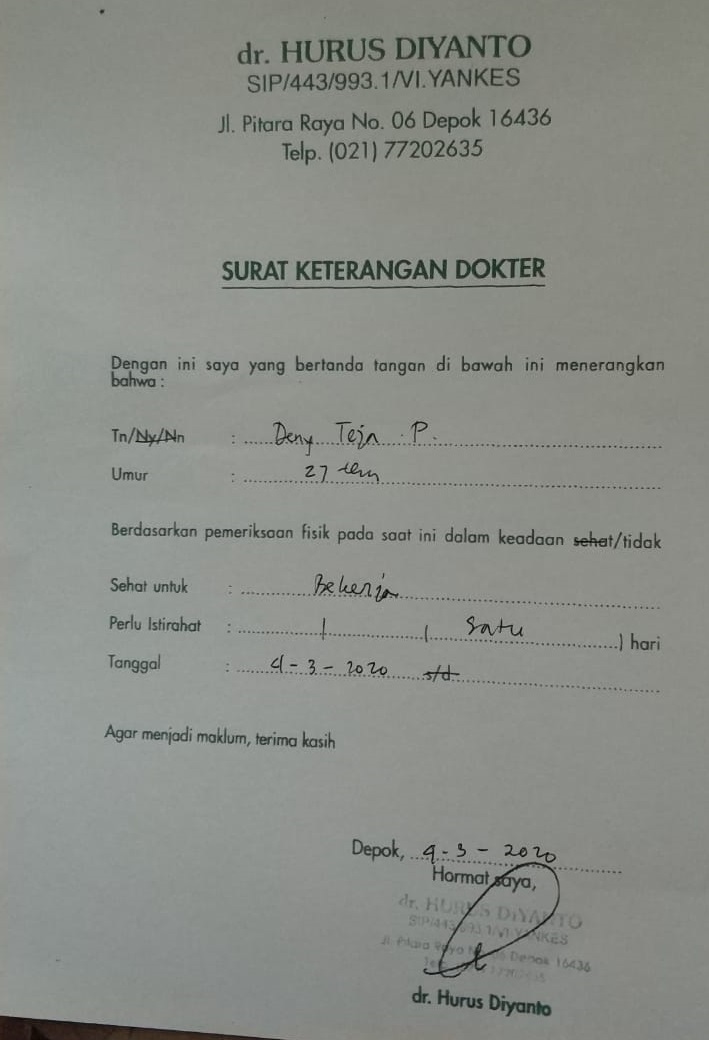 dr. HURUS DIYANTO
SIP/443/993.1/VI.YANKES
Jl. Pitara Raya No. 06 Depok 16436
Telp. (021) 77202635
SURAT KETERANGAN DOKTER
Dengan ini saya yang bertanda tangan di bawah ini menerangkan
bahwa :
Tn/Ny/Nn : Deny Teja P.
Umur : 27
Berdasarkan pemeriksaan fisik pada saat ini dalam keadaan sehat/tidak
Sehat untuk : Bekerja
Perlu Istirahat : 1 ( Satu ) hari
Tanggal : 4-3-2020 s/d
Agar menjadi maklum, terima kasih
Depok, 4-3-2020
Hormat saya,
dr. HURUS DIYANTO
SIP/443/993.1/VI.YANKES
Jl. Pitara Raya No. 06 Depok 16436
dr. Hurus Diyanto